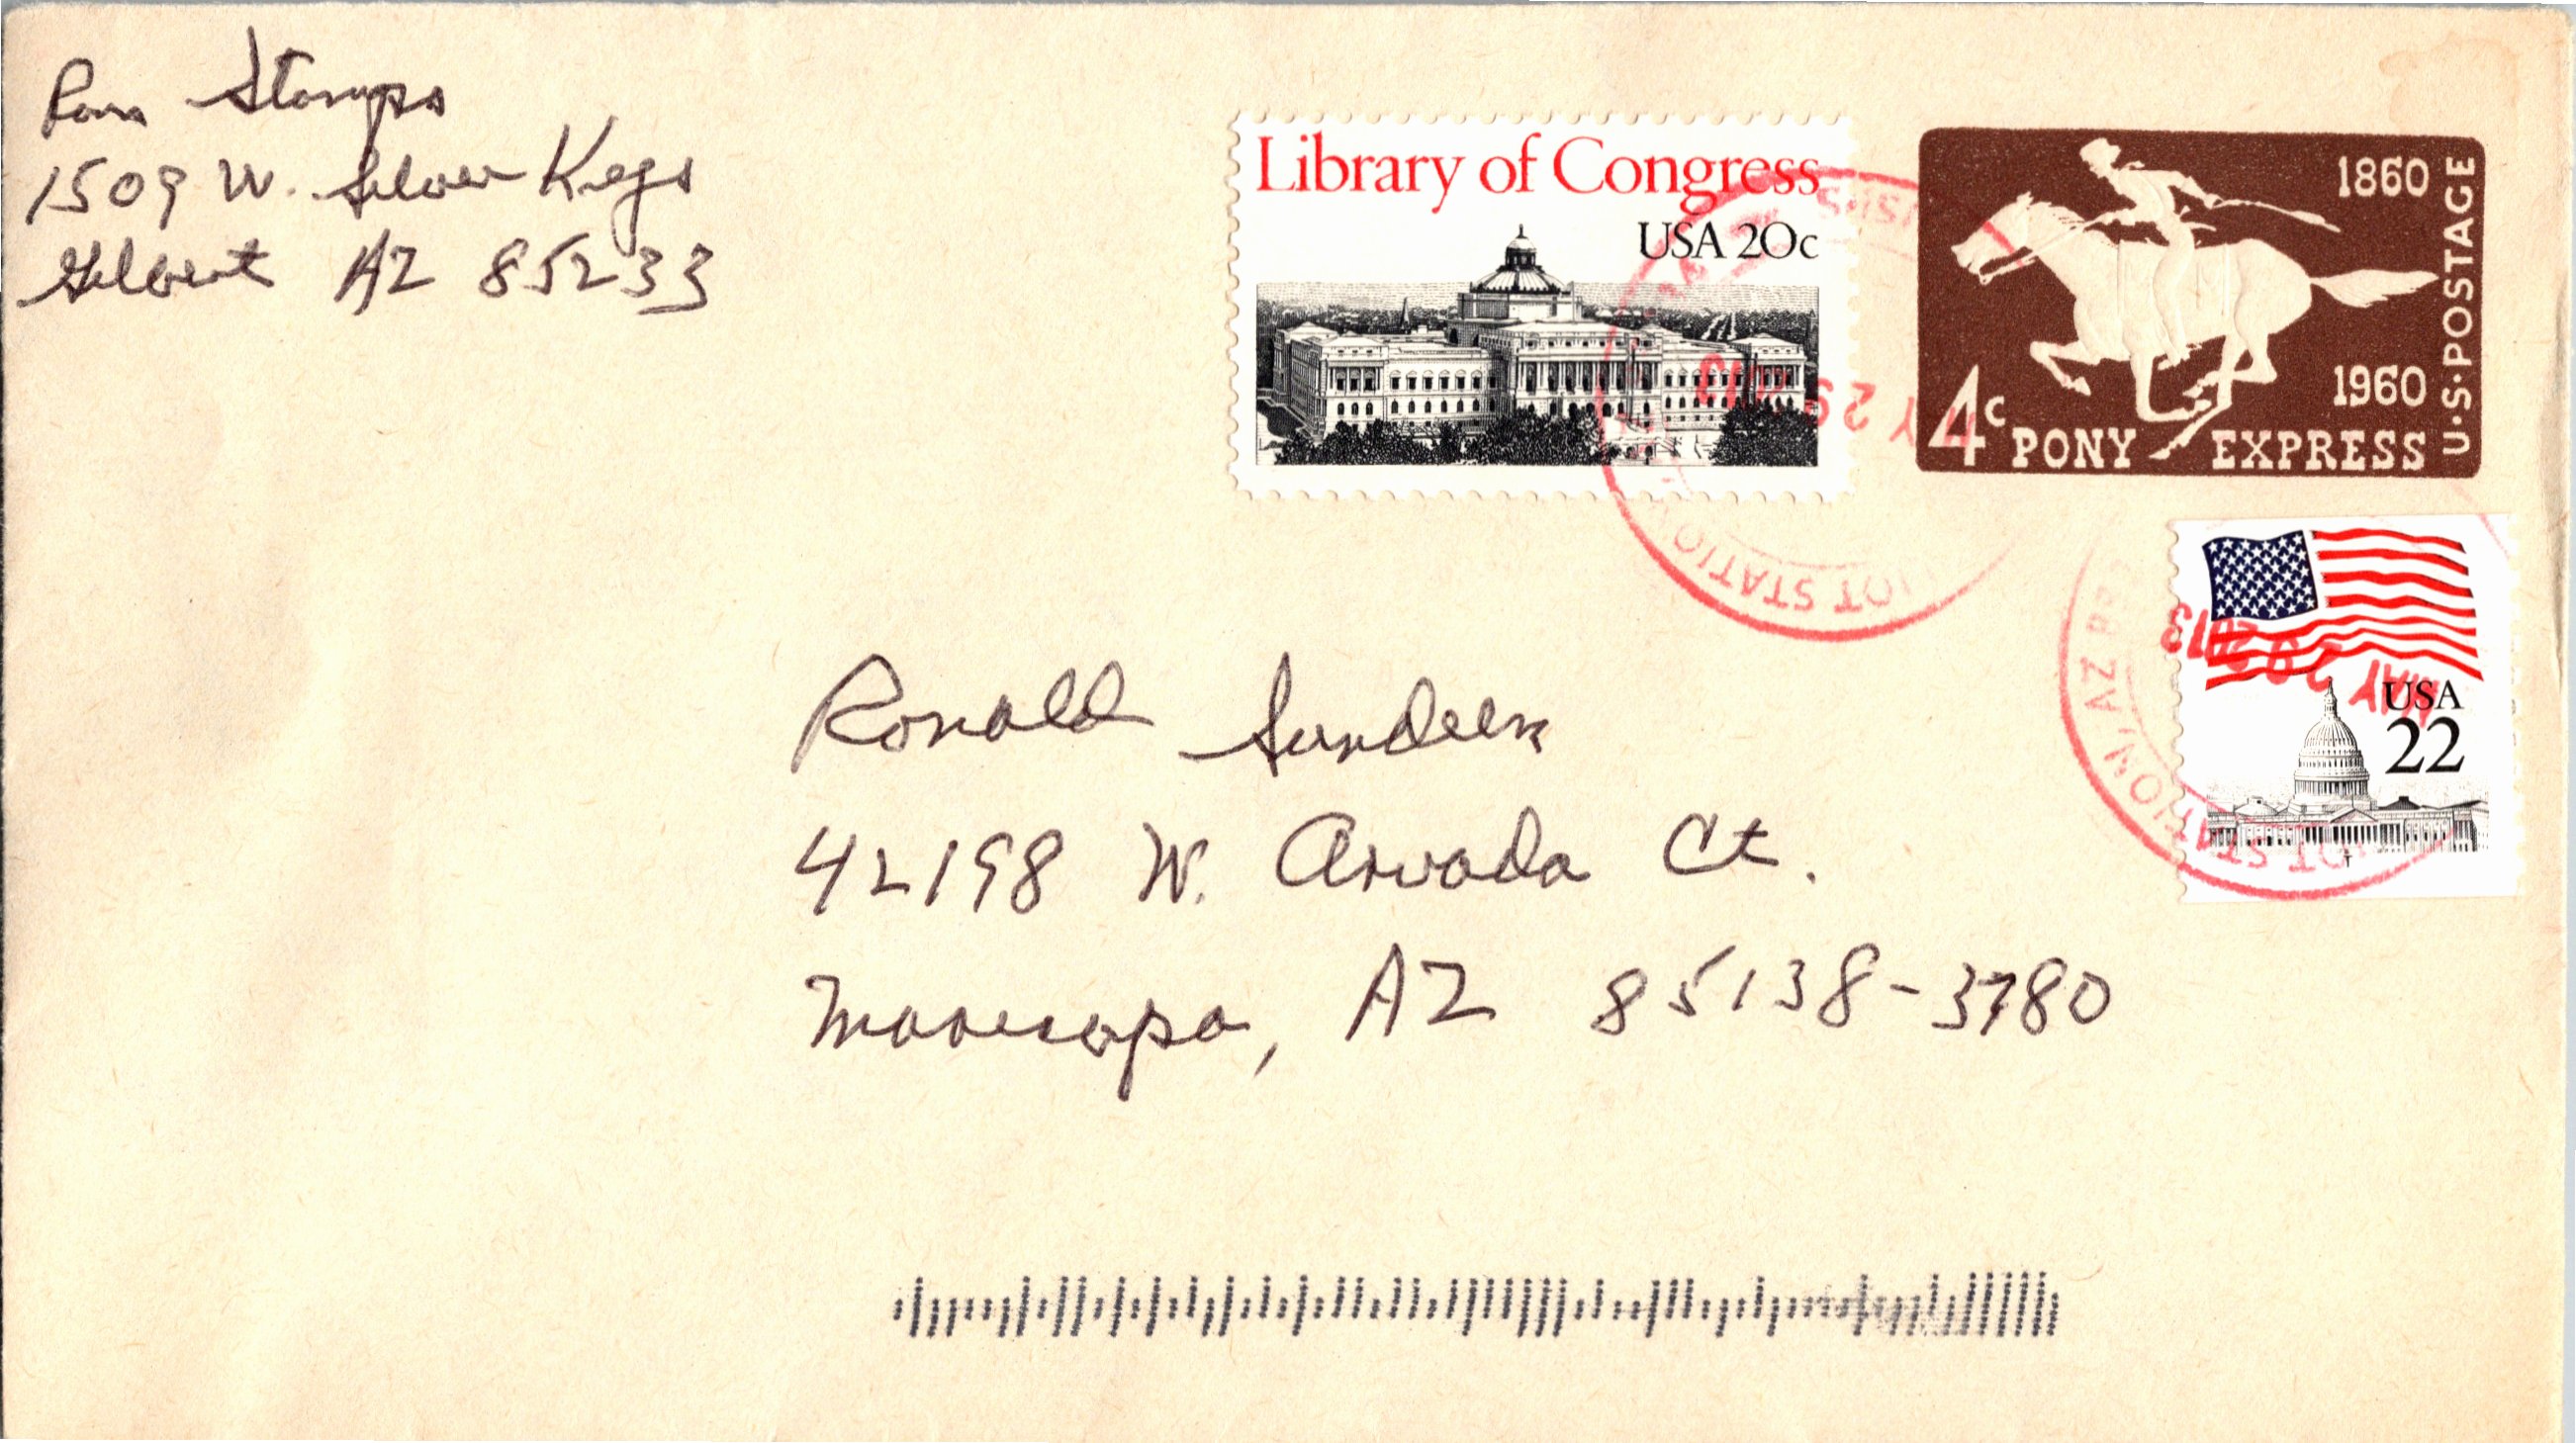 Ron Stamps
1509 W. Silver Keys
Gilbert AZ 85233
Library of Congress
USA 20c
1860
1960
4c PONY EXPRESS
U·S·POSTAGE
USA
22
MAY 29 2013
Ronald Sundeen
42198 W. Arvada Ct.
Maricopa, AZ 85138-3780